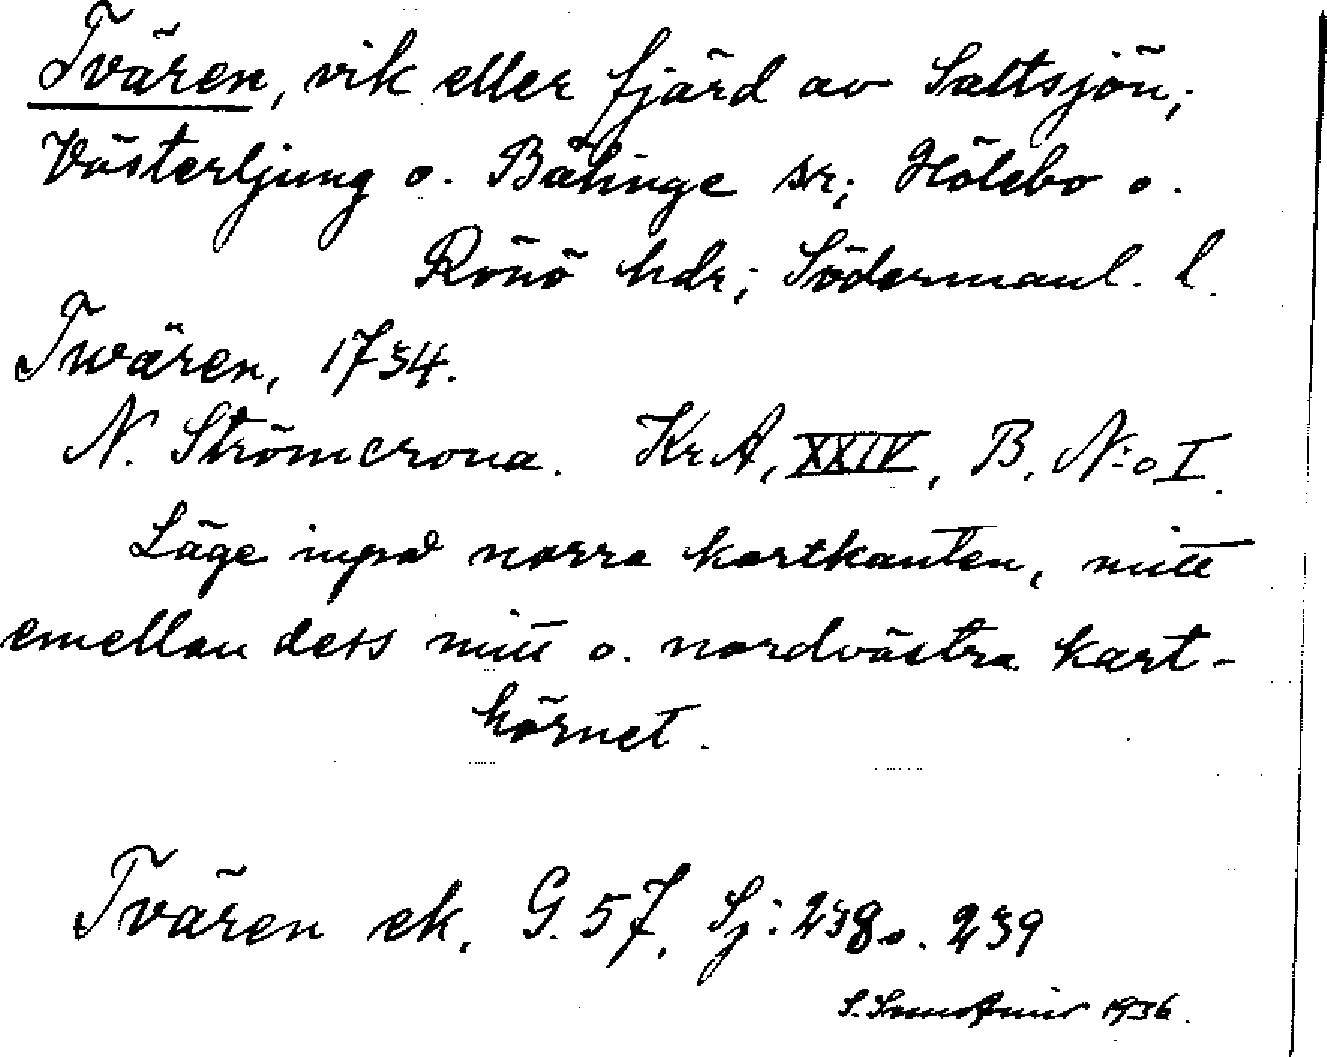 Tvären, vik eller fjärd av Saltsjön;
Västerljung o. Bälinge snr; Hölebo o.
Rönö hdr; Södermanl. l.
Twären, 1734.
N. Strömcrona. KrA, XXIV, B. N:o I.
Läge inpå norra kartkanten, mitt
emellan dess mitt o. nordvästra kart-
hörnet.
Tvären ek. G. 57, Sj: 238 o. 239
S. 1936.